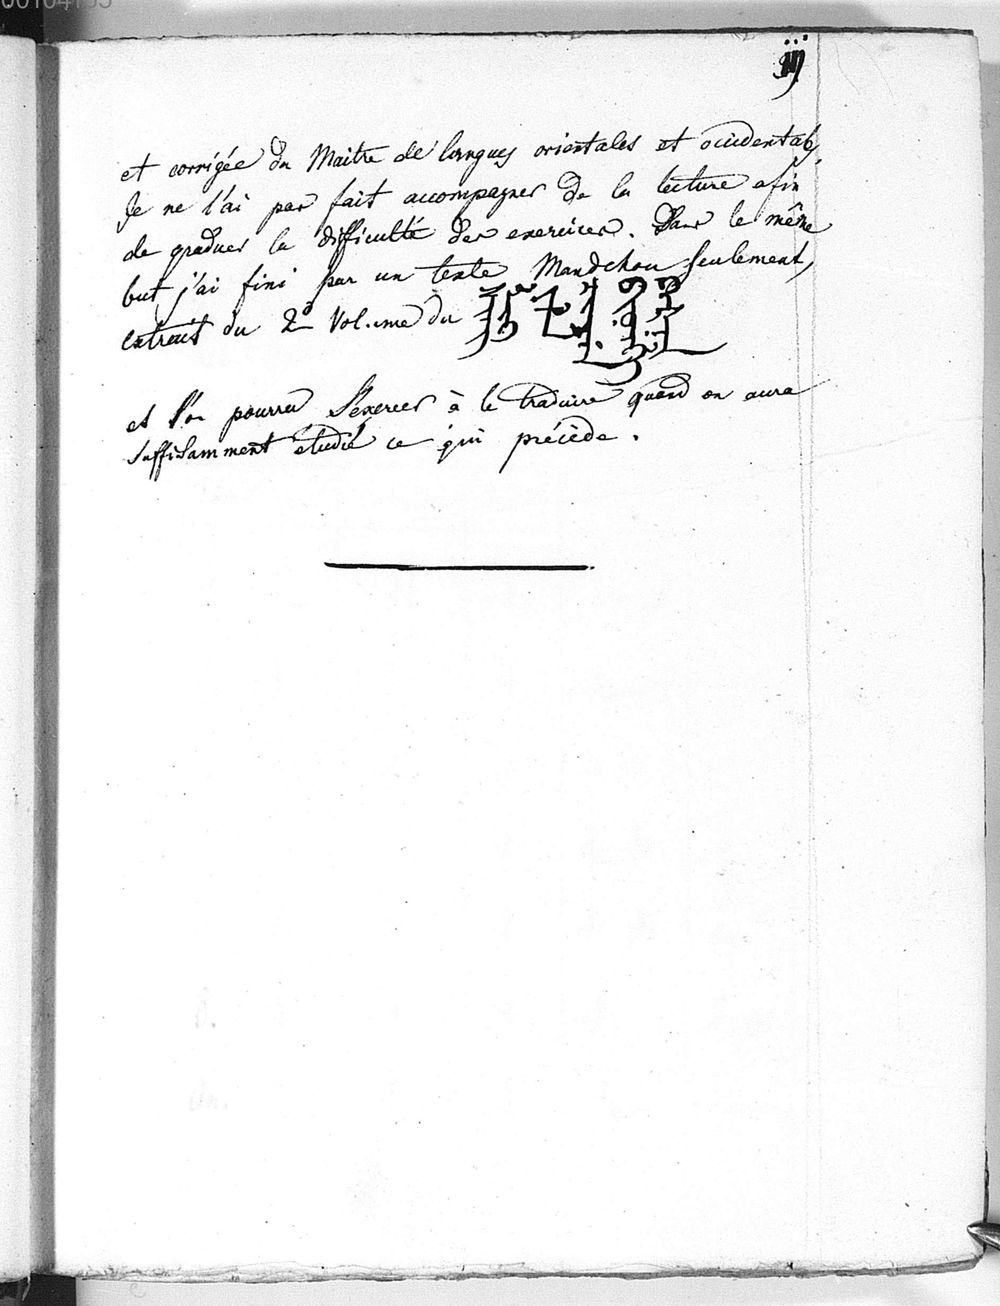 00104155
iij
et corrigée du Maitre de langues orientales et occidentales,
Je ne l'ai pas fait accompagner de la lecture afin
de graduer la difficulté des exercices. Dans le même
but j'ai fini par un texte Mandchou seulement,
extrait du 2d Vol.ume du
et l'on pourra s'exercer à le traduire quand on aura
suffisamment étudié ce qui précède.